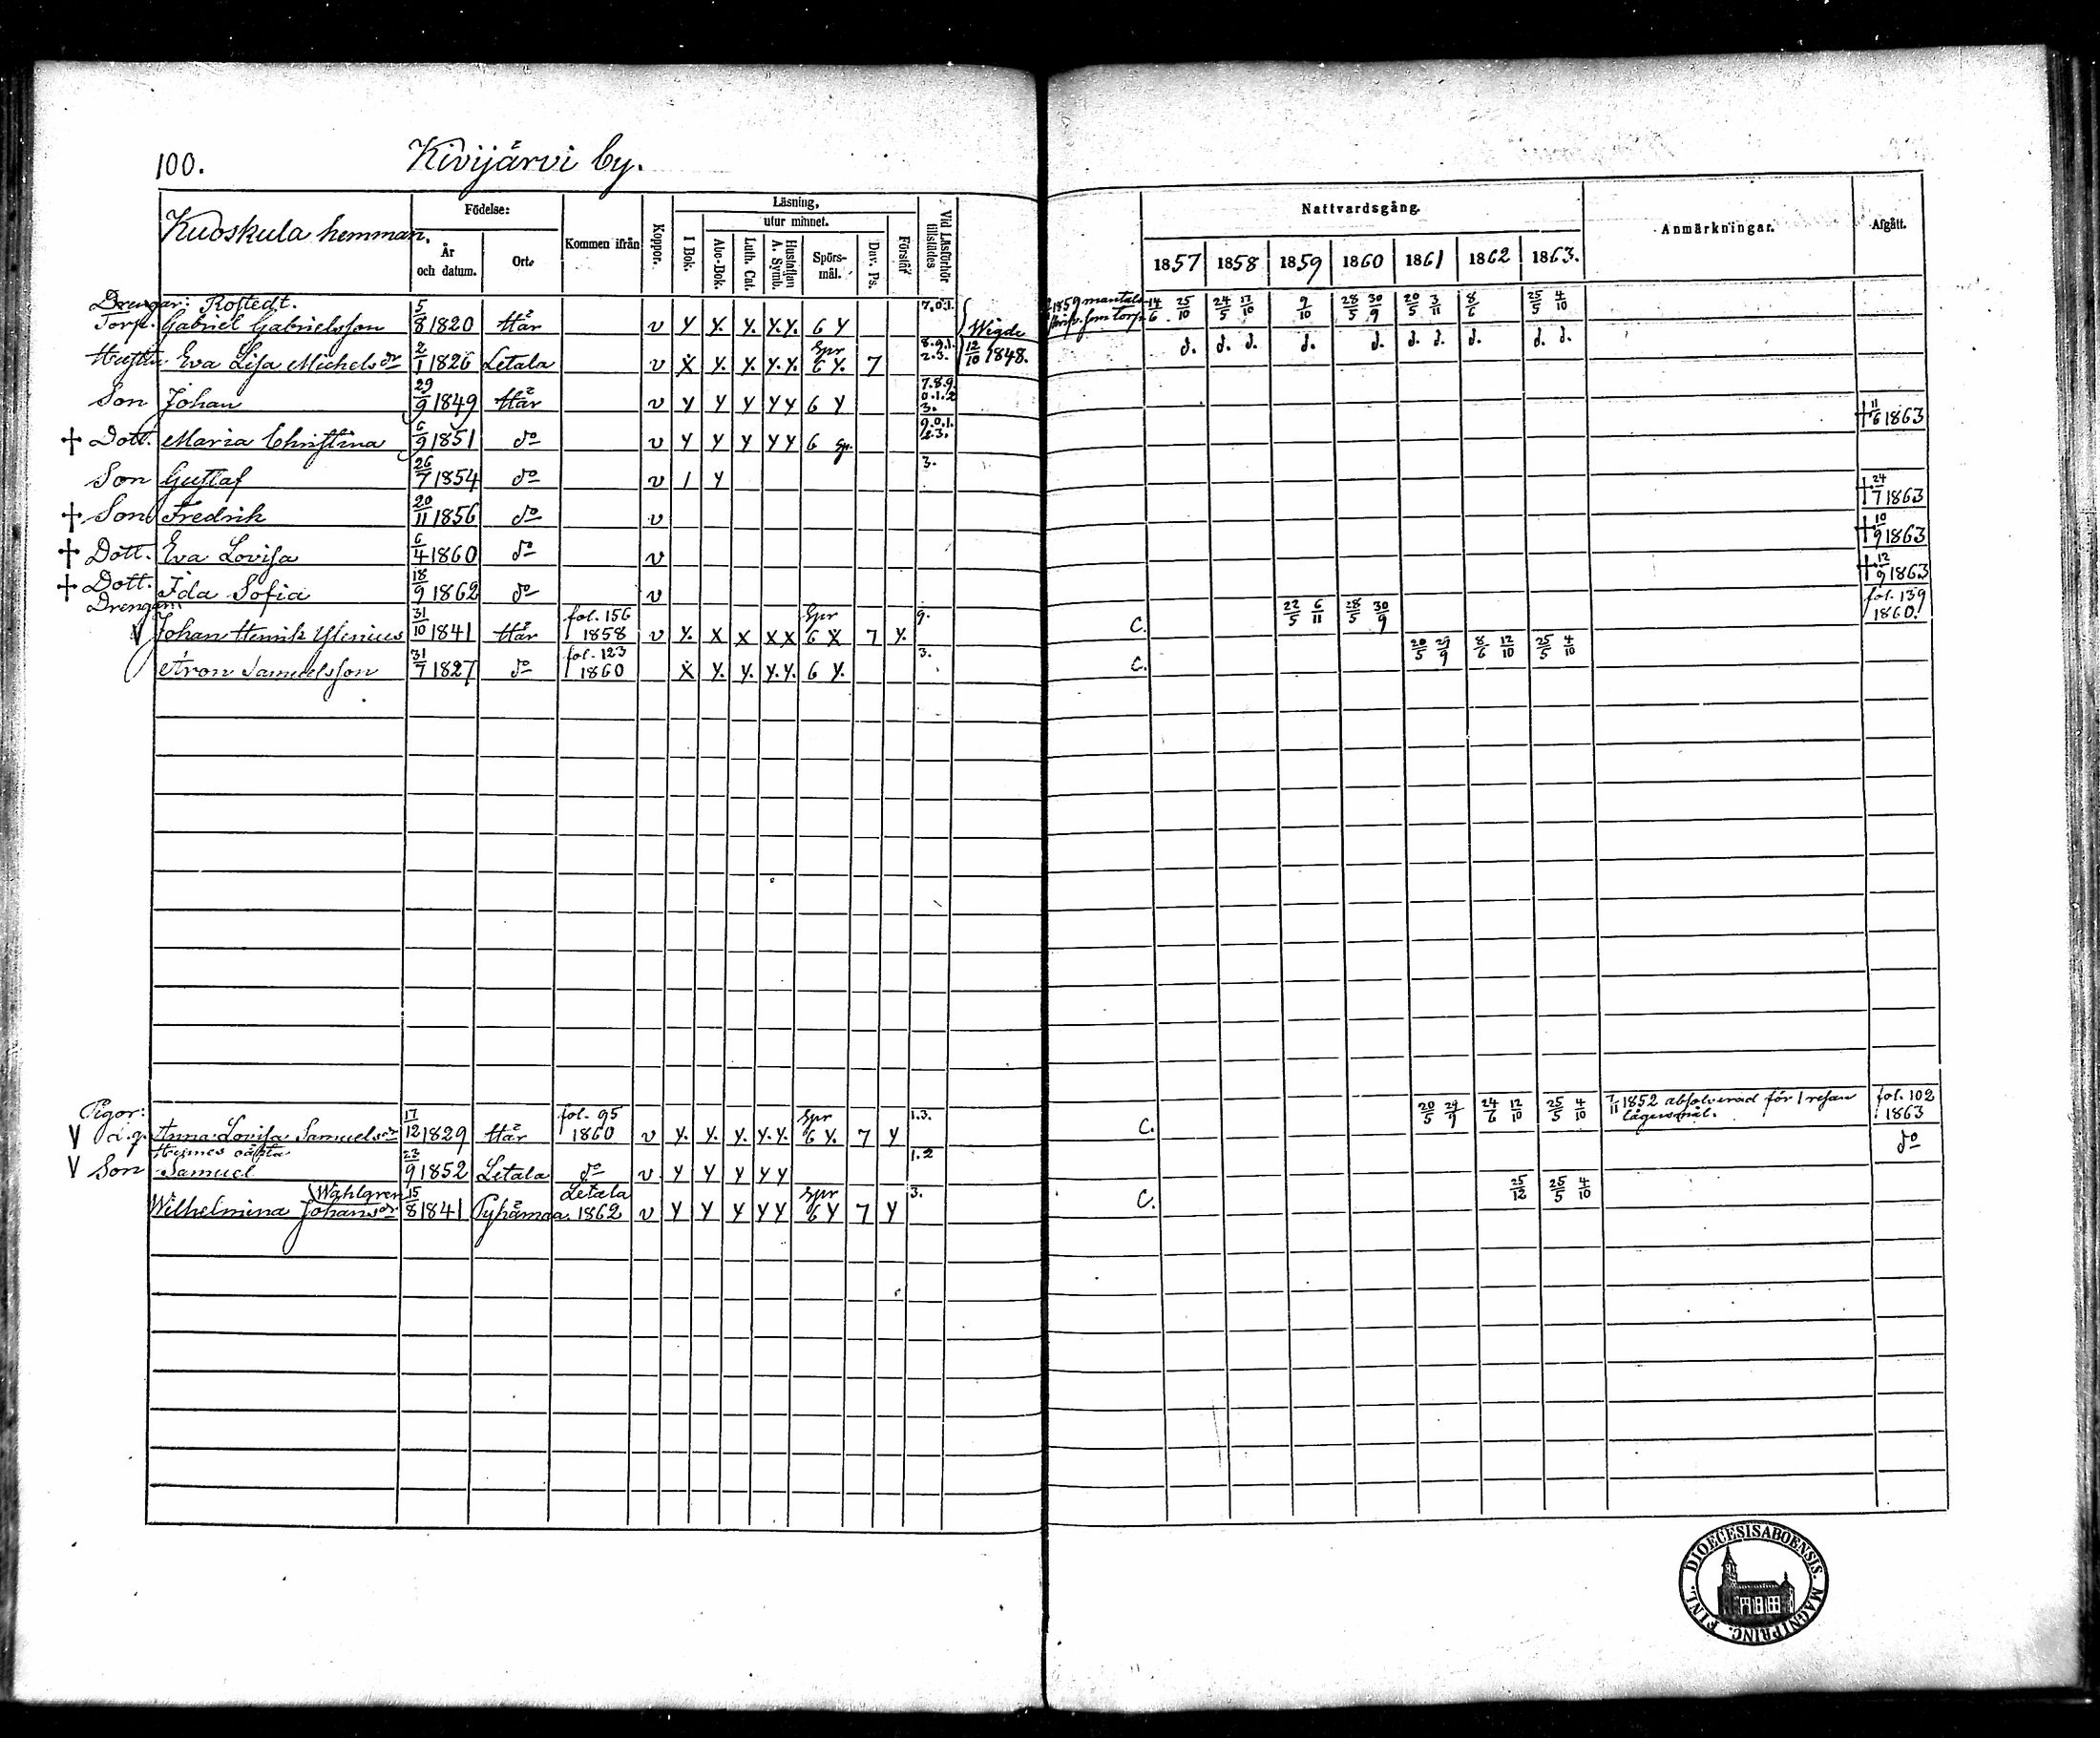 100. Kivijärvi by.
Kuoskula hemman.
Födelse:
År och datum.
Ort.
Kommen ifrån
Koppor.
Läsning,
utur minnet.
I Bok.
Abc-Bok.
Luth. Cat.
Hustaflan A. Symb.
Spörs-mål.
Dav. Ps.
Förstår
Vid Läsförhör tillstädes
Nattvardsgång.
1857 1858 1859 1860 1861 1862 1863.
Anmärkningar.
Afgått.
Drengar: Rostedt. 7.0.1.
Torp. Gabriel Gabrielsson 5/8 1820 Här v y y. y. y.y. 6 y Wigde 1859 mantals skrifv. som torp. 14/6 25/10 24/5 17/10 9/10 28/5 30/9 20/5 3/11 8/6 25/5 4/10
Hustru Eva Lisa Michelsdr 2/1 1826 Letala v x y. y. y.y. Spr 6 y. 7 8.9.1. 2.3. 12/10 1848. d. d. d. d. d. d. d. d. d. d.
Son Johan 29/9 1849 Här v y y y y y 6 y 7.8.9. 0.1.2 3.
+ Dott. Maria Christina 6/9 1851 do v y y y y y 6 Spr 9.0.1. 2.3. + 11/6 1863
Son Gustaf 26/7 1854 do v 1 y 3.
+ Son Fredrik 20/11 1856 do v + 24/7 1863
+ Dott. Eva Lovisa 6/4 1860 do v + 10/9 1863
+ Dott. Ida Sofia 18/9 1862 do v + 12/9 1863
Drengar:
V Johan Henrik Ylenius 31/10 1841 Här fol. 156 1858 v y. x x x x Spr 6 x 7 y. 9. C. 22/5 6/11 28/5 30/9 fol. 139 1860.
Aron Samuelsson 31/7 1827 do fol. 123 1860 x y. y. y.y. 6 y. 3. C. 20/5 29/9 8/6 12/10 25/5 4/10
Pigor:
V Anna Lovisa Samuelsdr 17/12 1829 Här fol. 95 1860 v y. y. y. y.y. Spr 6 y. 7 y 1.3. C. 20/5 29/9 24/6 12/10 25/5 4/10 7/11 1852 absolverad för 1 resan lägersmål. fol. 102 1863
Hennes oäkta
V Son Samuel 23/9 1852 Letala do v y y y y y 1.2 do
Wahlgren
Wilhelmina Johansdr 15/8 1841 Pyhämaa Letala 1862 v y y y y y Spr 6 y 7 y 3. C. 25/12 25/5 4/10
DIOECESIS ABOENSIS. MAGNI PRINC. FINL.